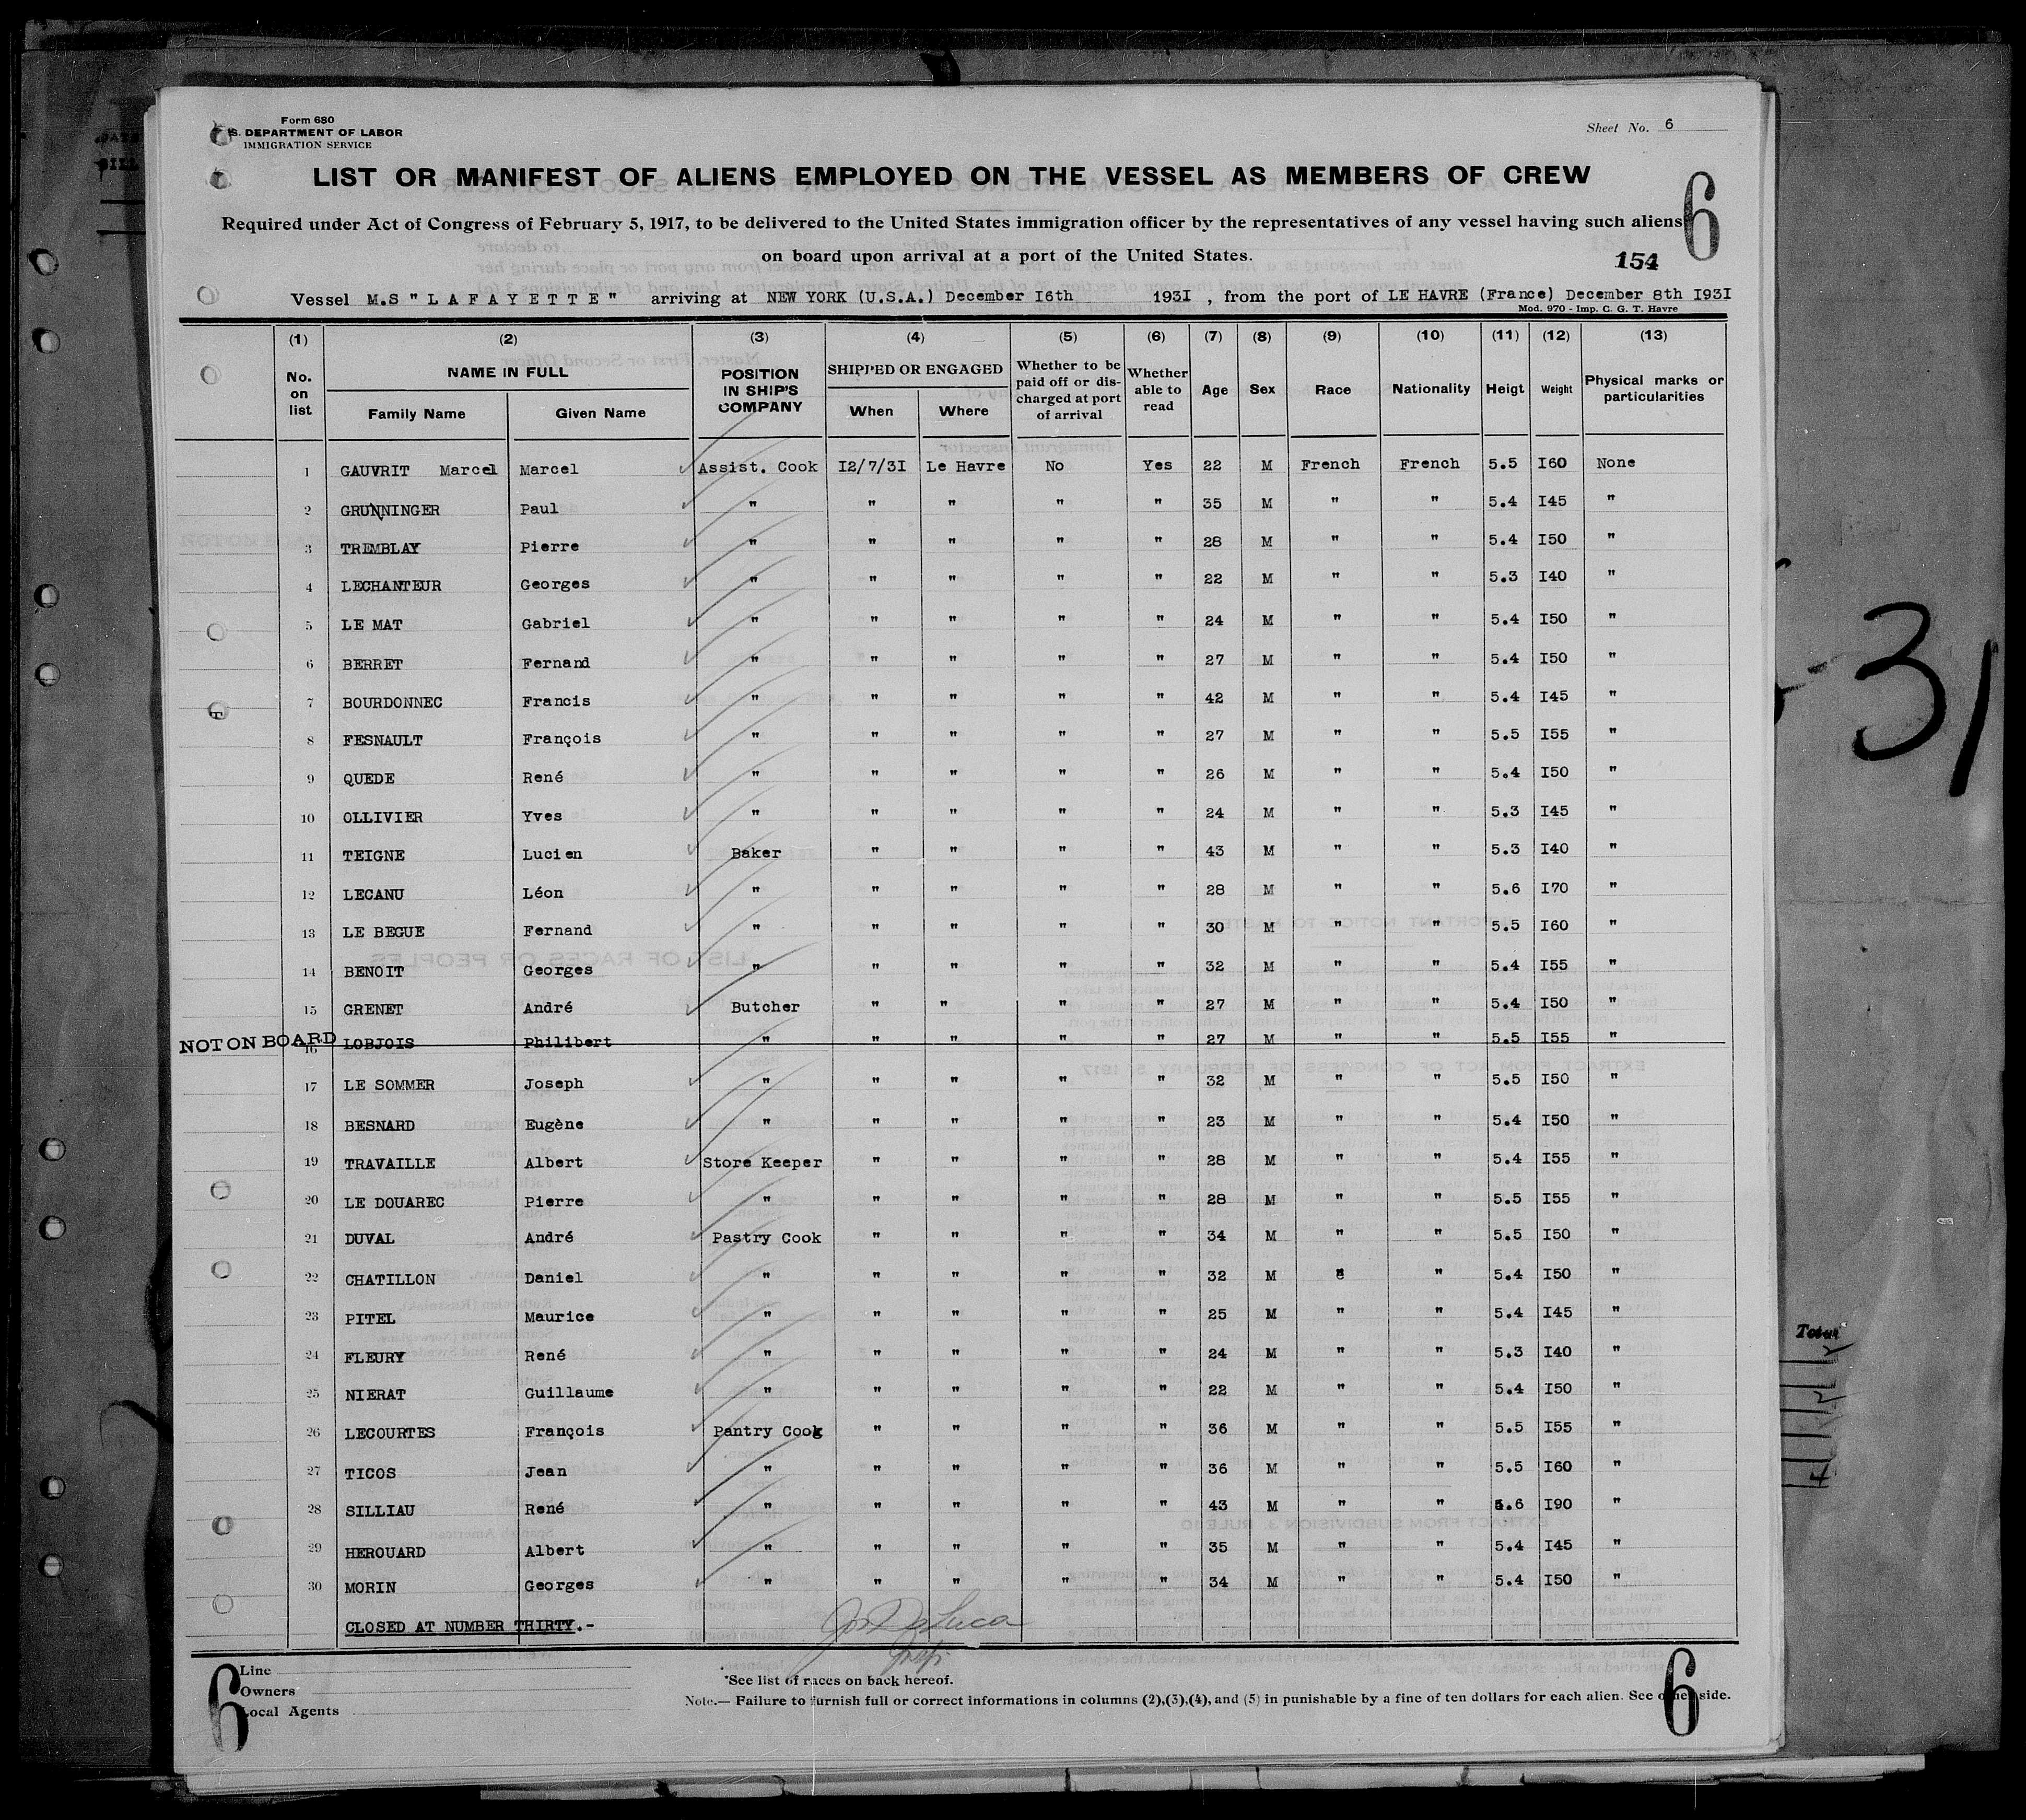 Form 680
S. DEPARTMENT OF LABOR
IMMIGRATION SERVICE
Sheet No. 6
LIST OR MANIFEST OF ALIENS EMPLOYED ON THE VESSEL AS MEMBERS OF CREW
6
Required under Act of Congress of February 5, 1917, to be delivered to the United States immigration officer by the representatives of any vessel having such aliens
on board upon arrival at a port of the United States.
154
Vessel M.S "LAFAYETTE" arriving at NEW YORK (U.S.A.) December I6th 193I , from the port of LE HAVRE (France) December 8th I93I
Mod. 970 - Imp. C. G. T. Havre
(1) (2) (3) (4) (5) (6) (7) (8) (9) (10) (11) (12) (13)
No. on list NAME IN FULL Family Name Given Name POSITION IN SHIP'S COMPANY SHIPPED OR ENGAGED When Where Whether to be paid off or discharged at port of arrival Whether able to read Age Sex Race Nationality Heigt Weight Physical marks or particularities
1 GAUVRIT Marcel Marcel Assist. Cook I2/7/3I Le Havre No Yes 22 M French French 5.5 I60 None
2 GRUNNINGER Paul " " " " " 35 M " " 5.4 I45 "
3 TREMBLAY Pierre " " " " " 28 M " " 5.4 I50 "
4 LECHANTEUR Georges " " " " " 22 M " " 5.3 I40 "
5 LE MAT Gabriel " " " " " 24 M " " 5.4 I50 "
6 BERRET Fernand " " " " " 27 M " " 5.4 I50 "
7 BOURDONNEC Francis " " " " " 42 M " " 5.4 I45 "
8 FESNAULT François " " " " " 27 M " " 5.5 I55 "
9 QUEDE René " " " " " 26 M " " 5.4 I50 "
10 OLLIVIER Yves " " " " " 24 M " " 5.3 I45 "
11 TEIGNE Lucien Baker " " " " 43 M " " 5.3 I40 "
12 LECANU Léon " " " " " 28 M " " 5.6 I70 "
13 LE BEGUE Fernand " " " " " 30 M " " 5.5 I60 "
14 BENOIT Georges " " " " " 32 M " " 5.4 I55 "
15 GRENET André Butcher " " " " 27 M " " 5.4 I50 "
NOT ON BOARD 16 LOBJOIS Philibert " " " " " 27 M " " 5.5 I55 "
17 LE SOMMER Joseph " " " " " 32 M " " 5.5 I50 "
18 BESNARD Eugène " " " " " 23 M " " 5.4 I50 "
19 TRAVAILLE Albert Store Keeper " " " " 28 M " " 5.4 I55 "
20 LE DOUAREC Pierre " " " " " 28 M " " 5.5 I55 "
21 DUVAL André Pastry Cook " " " " 34 M " " 5.5 I50 "
22 CHATILLON Daniel " " " " " 32 M " " 5.4 I50 "
23 PITEL Maurice " " " " " 25 M " " 5.4 I45 "
24 FLEURY René " " " " " 24 M " " 5.3 I40 "
25 NIERAT Guillaume " " " " " 22 M " " 5.4 I50 "
26 LECOURTES François Pantry Cook " " " " 36 M " " 5.5 I55 "
27 TICOS Jean " " " " " 36 M " " 5.5 I60 "
28 SILLIAU René " " " " " 43 M " " 5.6 I90 "
29 HEROUARD Albert " " " " " 35 M " " 5.4 I45 "
30 MORIN Georges " " " " " 34 M " " 5.4 I50 "
CLOSED AT NUMBER THIRTY.-
Jos DeLuca
Insp.
6
Line
Owners
Local Agents
*See list of races on back hereof.
Note.— Failure to furnish full or correct informations in columns (2),(3),(4), and (5) in punishable by a fine of ten dollars for each alien. See other side.
6
31
Total